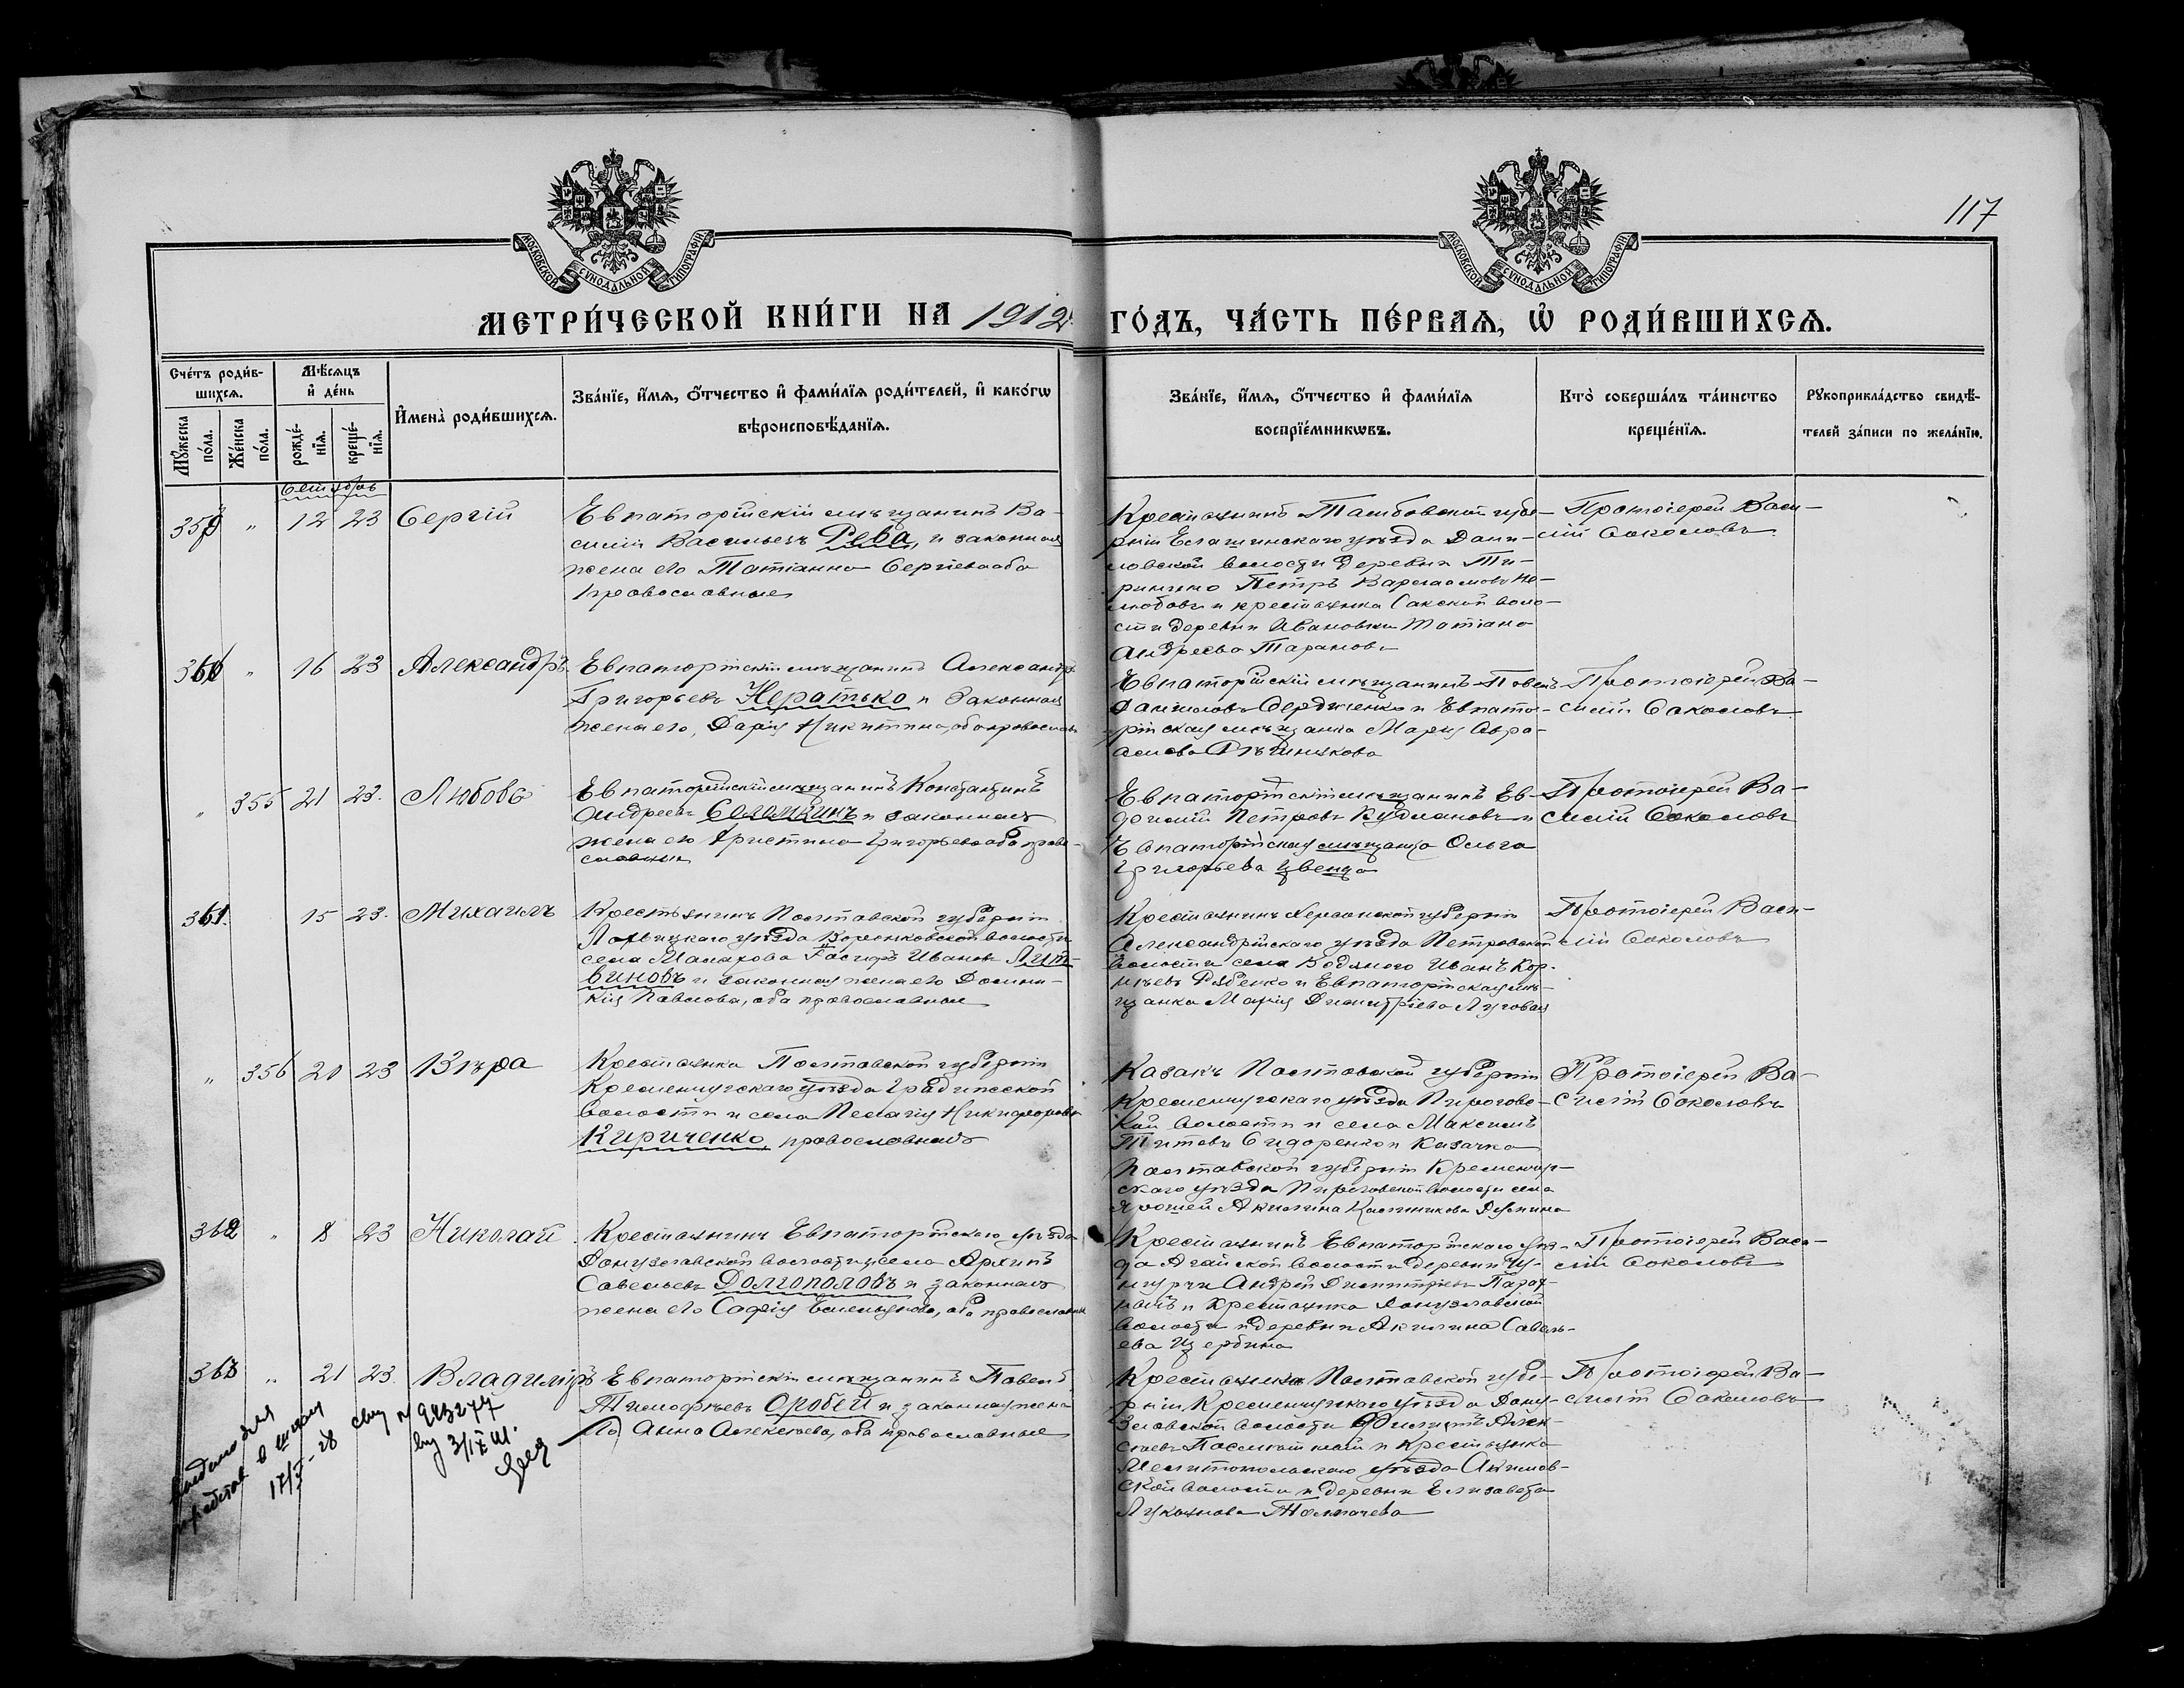 117
МОСКОВСКОЙ СѴНОДАЛЬНОЙ ТИПОГРАФІИ
МОСКОВСКОЙ СѴНОДАЛЬНОЙ ТИПОГРАФІИ
МЕТРИ́ЧЕСКОЙ КНИ́ГИ НА 1912 ГО́ДЪ, ЧА́СТЬ ПЕ́РВАѦ, Ѡ҆ РОДИ́ВШИХСѦ.
Сче́тъ роди́в-
шихсѧ.
Мꙋ́жеска по́ла.
Же́нска по́ла.
Мѣ́сѧцъ
и҆ де́нь
рожде́-
нїѧ.
креще́-
нїѧ.
И҆мена̀ роди́вшихсѧ.
Зва́нїе, и҆́мѧ, ѻ҆́тчество и҆ фами́лїѧ роди́телей, и҆ како́гѡ
вѣроисповѣ́данїѧ.
Зва́нїе, и҆́мѧ, ѻ҆́тчество и҆ фами́лїѧ
воспрїе́мникѡвъ.
Кто̀ соверша́лъ та́инство
креще́нїѧ.
Рꙋкоприкла́дство свидѣ́-
телей за́писи по жела́нїю.
Сентябрь
359 " 12 23 Сергій
Евпаторійскій мѣщанинъ Ва-
силій Васильевъ Реба, и законная
жена его Татіанна Сергіева оба
православные
Крестьянинъ Тамбовской губе-
рніи Елатминскаго уѣзда Дани-
ловской волости деревни
Петръ Варлаамовъ
и крестьянка Сакской воло-
сти деревни Ивановки Татіана
Андреева Таранова
Протоіерей Васи-
лій Соколовъ
360 " 16 23 Александръ
Евпаторійскій мѣщанинъ Александръ
Григорьевъ Нератько и законная
жена его, Дарія Никитина, оба православн
Евпаторійскій мѣщанинъ Павелъ
Даниловъ Сердченко и Евпато-
рійская мѣщанка Марія Авра-
амова
Протоіерей Ва-
силій Соколовъ
" 355 21 23. Любовь
Евпаторійскій мѣщанинъ Константинъ
Андреевъ Саламкинъ и законная
жена его Христина Григорьева оба право-
славные
Евпаторійскій мѣщанинъ Ев-
докимъ Петровъ и
Евпаторійская мѣщанка Ольга
Григорьева
Протоіерей Ва-
силій Соколовъ
361. 15 23. Михаилъ
Крестьянинъ Полтавской губерніи
Лохвицкаго уѣзда волости
села Иванов Лит-
виновъ и законная жена его Домни-
кія Павлова, оба православные
Крестьянинъ Херсонской губерніи
Александрійскаго уѣзда Петровской
волости села Водяного Иванъ Кор-
нѣевъ Рябенко и Евпаторійская мѣ-
щанка Марія Димитріева Луговая
Протоіерей Васи-
лій Соколовъ
" 356 20 23 Вѣра
Крестьянка Полтавской губерніи
Кременчугскаго уѣзда Градижской
волости и села Пелагія Никифорова
Кириченко, православная
Казакъ Полтавской губерніи
Кременчугскаго уѣзда Пирогов-
кой волости и села Максимъ
Титовъ Сидоренко и казачка
Полтавской губерніи Кременчуг-
скаго уѣзда Пироговской волости села
Акилина Калинникова
Протоіерей Ва-
силій Соколовъ
362 " 8 23 Николай
Крестьянинъ Евпаторійскаго уѣзда
Донузлавской волости и села Архипъ
Савельевъ Долгополовъ и законная
жена его Софія Емельянова, оба православные
Крестьянинъ Евпаторійскаго уѣз-
да Агайской волости деревни
Андрей Димитріевъ
и крестьянка Донузлавской
волости и деревни Акилина Савель-
ева Щербина
Протоіерей Васи-
лій Соколовъ
363 " 21 23. Владиміръ
Евпаторійскій мѣщанинъ Павелъ
Тимофѣевъ Оробей и законная жена
его Анна Алексѣева, оба православные
Крестьянинъ Полтавской губе-
рніи Кременчугскаго уѣзда Дону-
злавской волости Филиппъ Алек-
сѣевъ и крестьянка
Мелитопольскаго уѣзда Акимов-
ской волости и деревни Елизавета
Лукьянова Толмачева
Протоіерей Ва-
силій Соколовъ
для
в школу
17/I-28
№ 943277
3/IX 41.